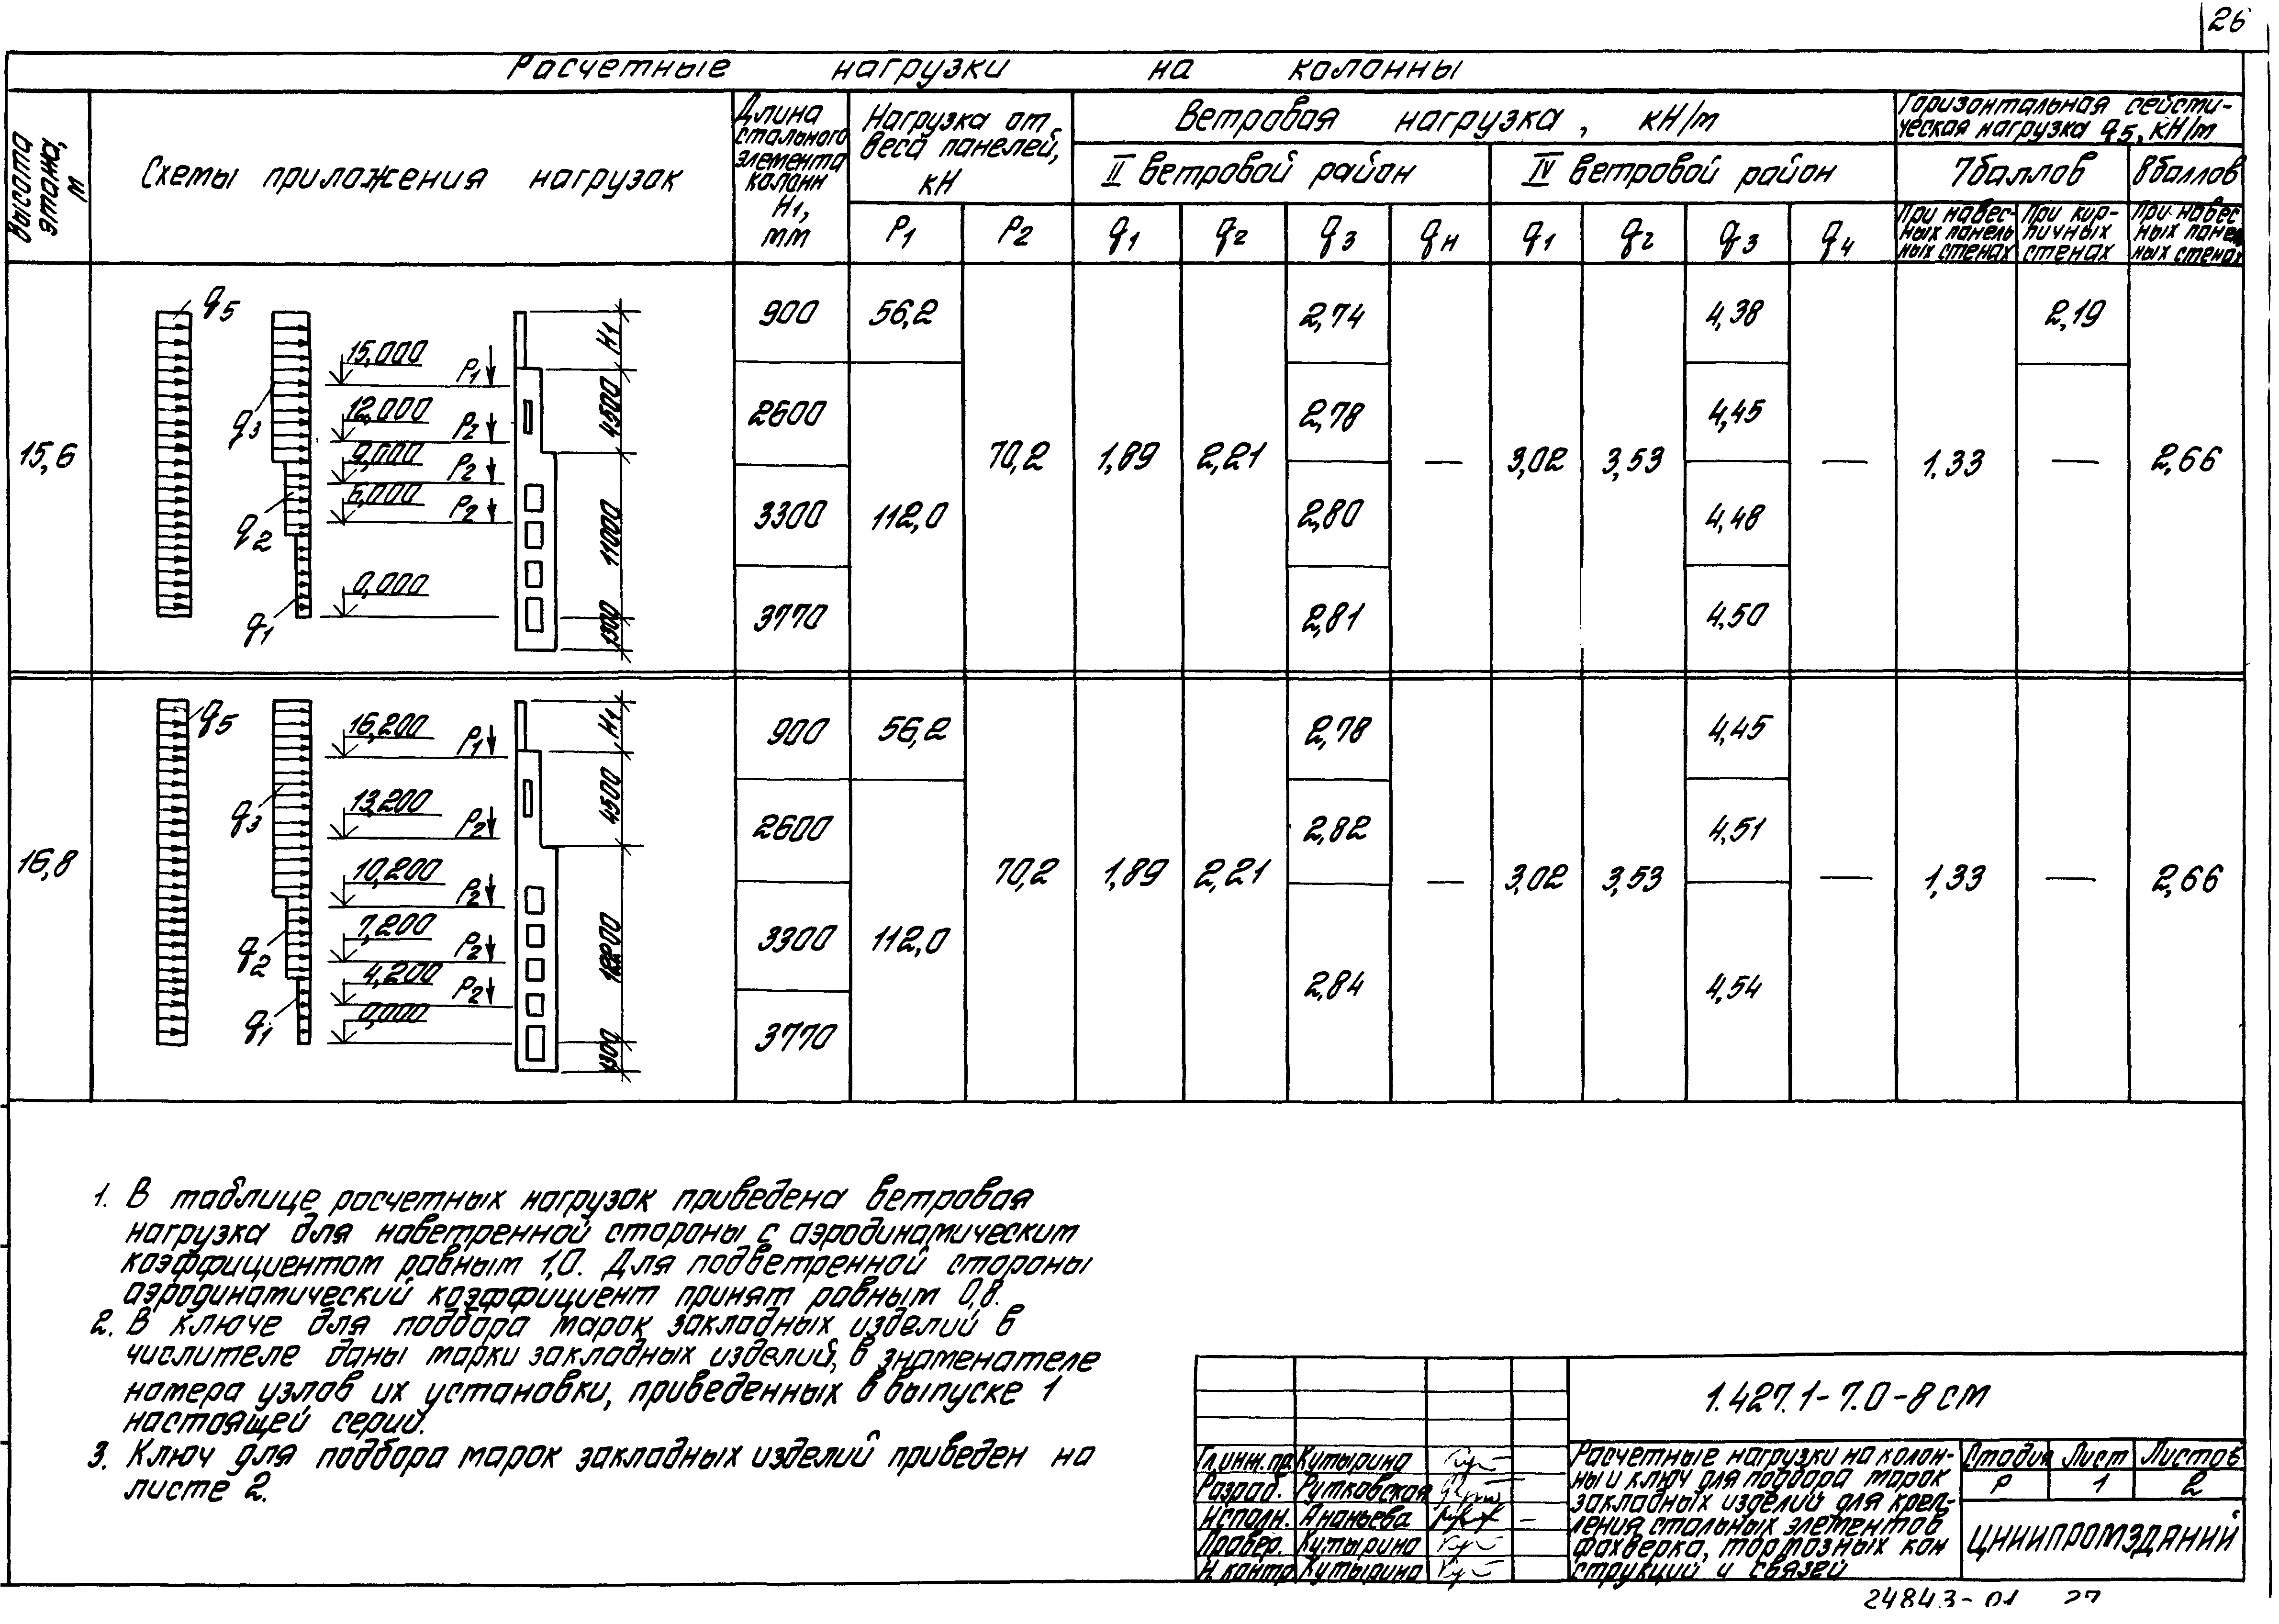 26
Расчетные нагрузки на колонны
Высота этажа, м
Схемы приложения нагрузок
Длина стального элемента колонн H1, мм
Нагрузка от веса панелей, кН
P1 P2
Ветровая нагрузка, кН/м
II ветровой район
q1 q2 q3 qн
IV ветровой район
q1 q2 q3 q4
Горизонтальная сейсми-
ческая нагрузка q5, кН/м
7 баллов
8 баллов
При навес-
ных панель
ных стенах
При кир-
пичных
стенах
При навес
ных панель
ных стенах
15,6
q5
q3
q2
q1
15,000 P1
12,000 P2
9,000 P2
6,000 P2
0,000
H1
4500
11000
1300
900 56,2 2,74 4,38 2,19
2600 2,78 4,45
70,2 1,89 2,21 — 3,02 3,53 — 1,33 — 2,66
3300 112,0 2,80 4,48
3770 2,81 4,50
16,8
q5
q3
q2
q1
16,200 P1
13,200 P2
10,200 P2
7,200 P2
4,200 P2
0,000
H1
4500
12200
1300
900 56,2 2,78 4,45
2600 2,82 4,51
70,2 1,89 2,21 — 3,02 3,53 — 1,33 — 2,66
3300 112,0
2,84 4,54
3770
1. В таблице расчетных нагрузок приведена ветровая
нагрузка для наветренной стороны с аэродинамическим
коэффициентом равным 1,0. Для подветренной стороны
аэродинамический коэффициент принят равным 0,8.
2. В ключе для подбора марок закладных изделий в
числителе даны марки закладных изделий, в знаменателе
номера узлов их установки, приведенных в выпуске 1
настоящей серии.
3. Ключ для подбора марок закладных изделий приведен на
листе 2.
1.427.1-7.0-8 СМ
Гл.инж.пр Кутырина
Разраб. Рутковская
Исполн. Ананьева
Провер. Кутырина
Н.контр Кутырина
Расчетные нагрузки на колон-
ны и ключ для подбора марок
закладных изделий для креп-
ления стальных элементов
фахверка, тормозных кон
струкций и связей
Стадия Лист Листов
Р 1 2
ЦНИИПРОМЗДАНИЙ
24843-01 27